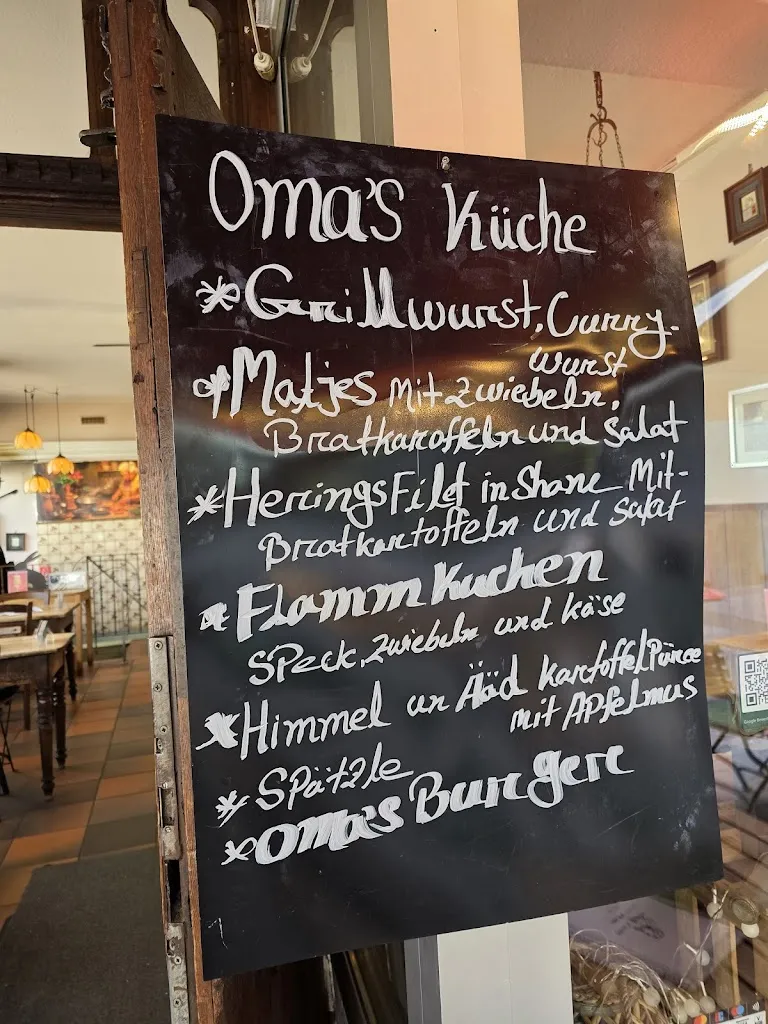 Oma's Küche
* Grillwurst, Curry-
wurst
* Matjes mit Zwiebeln,
Bratkaroffeln und Salat
* Herings Filet in Shane Mit-
Bratkartoffeln und Salat
* Flammkuchen
Speck, Zwiebeln und Käse
* Himmel un Ääd Kartoffelpüree
mit Apfelmus
* Spätzle
* Oma's Burger